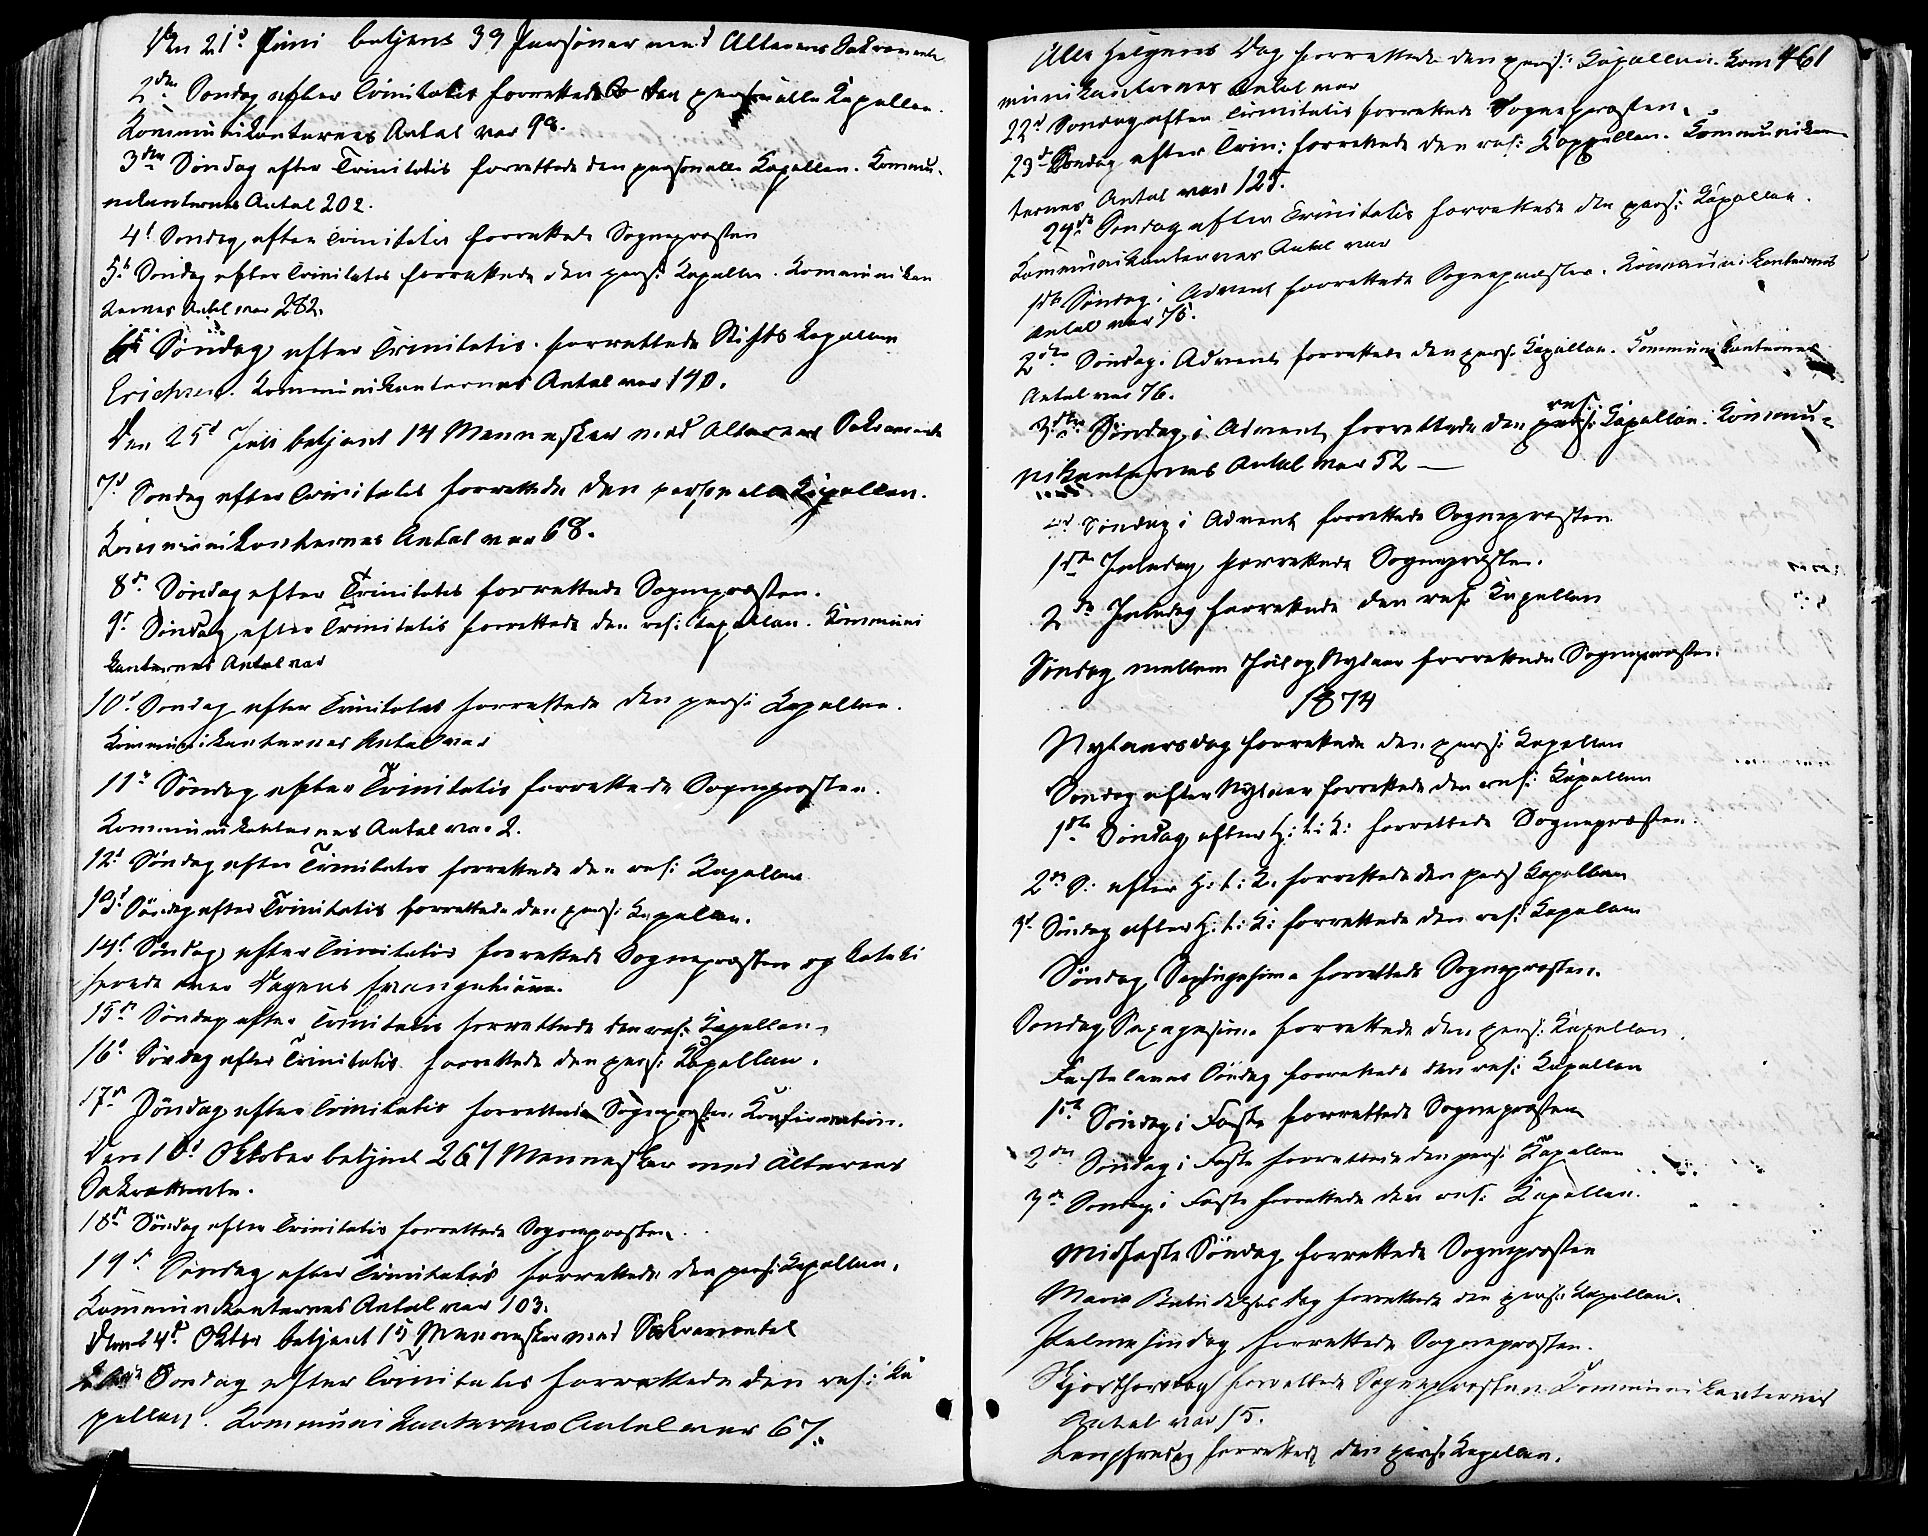 Den 21d Juni betjent 39 Personer med Alterens Sakramente
2den Søndag efter Trinitatis forrettede den personelle Kapellan.
Kommunikanternes Antal var 98.
3die Søndag efter Trinitatis forrettede den personelle Kapellan. Kommu-
nikanternes Antal 202.
4d Søndag efter Trinitatis forrettede Sognepræsten
5d Søndag efter Trinitatis forrettede den pers: Kapellan. Kommunikan
ternes Antal var 282.
6d Søndag efter Trinitatis forrettede Stifts Kapellan
Erichsen. Kommunikanternes Antal var 140.
Den 25d Juli betjent 14 Mennesker med Alterens Sakramente
7d Søndag efter Trinitatis forrettede den personelle Kapellan.
Kommunikanternes Antal var 68.
8d Søndag efter Trinitatis forrettede Sognepræsten.
9d Søndag efter Trinitatis forrettede den res: Kapellan. Kommuni
kanternes Antal var
10d Søndag efter Trinitatis forrettede den pers: Kapellan.
Kommunikanternes Antal var
11d Søndag efter Trinitatis forrettede Sognepræsten.
Kommunikanternes Antal var 2.
12d Søndag efter Trinitatis forrettede den res: Kapellan
13d Søndag efter Trinitatis forrettede den pers: Kapellan.
14d Søndag efter Trinitatis forrettede Sognepræsten og kateki
serede over Dagens Evangelium.
15d Søndag efter Trinitatis forrettede den res: Kapellan
16d Søndag efter Trinitatis forrettede den pers: Kapellan.
17d Søndag efter Trinitatis forrettede Sognepræsten. Konfirmation.
Den 10d Oktober betjent 267 Mennesker med Alterens
Sakramente.
18d Søndag efter Trinitatis forrettede Sognepræsten.
19d Søndag efter Trinitatis forrettede den pers: Kapellan.
Kommunikanternes Antal var 103.
Den 24d Oktbr betjent 15 Mennesker med Sakramentet
Søndag efter Trinitatis forrettede den res: Ka
pellan. Kommunikanternes Antal var 67.
461
Alle Helgens Dag forrettede den pers: Kapellan. Kom
munikanternes Antal var
22d Søndag efter Trinitatis forrettede Sognepræsten.
23d Søndag efter Trin: forrettede den res: Kappellan. Kommunikan
ternes Antal var 125.
24d Søndag efter Trinitatis forrettede den pers: Kapellan.
Kommunikanternes Antal var
1ste Søndag i Advent forrettede Sognepræsten. Kommunikanternes
Antal var 75.
2den Søndag i Advent forrettede den pers: Kapellan. Kommunikanternes
Antal var 76.
3die Søndag i Advent forrettede den res: Kapellan. Kommu-
nikanternes Antal var 52 —
4d Søndag i Advent forrettede Sognepræsten
1ste Juledag forrettede Sognepræsten.
2den Juledag forrettede den res: Kapellan
Søndag mellem Jul og Nytaar forrettede Sognepræsten.
1874
Nytaarsdag forrettede den pers: Kapellan
Søndag efter Nytaar forrettede den res: Kapellan
1ste Søndag efter H: t: K: forrettede Sognepræsten.
2den S: efter H: t: K: forrettede den pers Kapellan
3d Søndag efter H: t: K: forrettede den res: Kapellan
Søndag Septuagesima forrettede Sognepræsten.
Søndag Sexagesima forrettede den pers: Kapellan.
Fastelavns Søndag forrettede den res: Kapellan
1ste Søndag i Faste forrettede Sognepræsten
2den Søndag i Faste forrettede den pers: Kapellan
3die Søndag i Faste forrettede den res: Kapellan.
Midfaste Søndag forrettede Sognepræsten
Maria Bebudelses dag forrettede den pers: Kapellan.
Palmesøndag forrettede Sognepræsten.
Skjærthorsdag forrettede Sognepræsten. Kommunikanternes
Antal var 15.
Langfredag forrettede den pers: Kapellan.